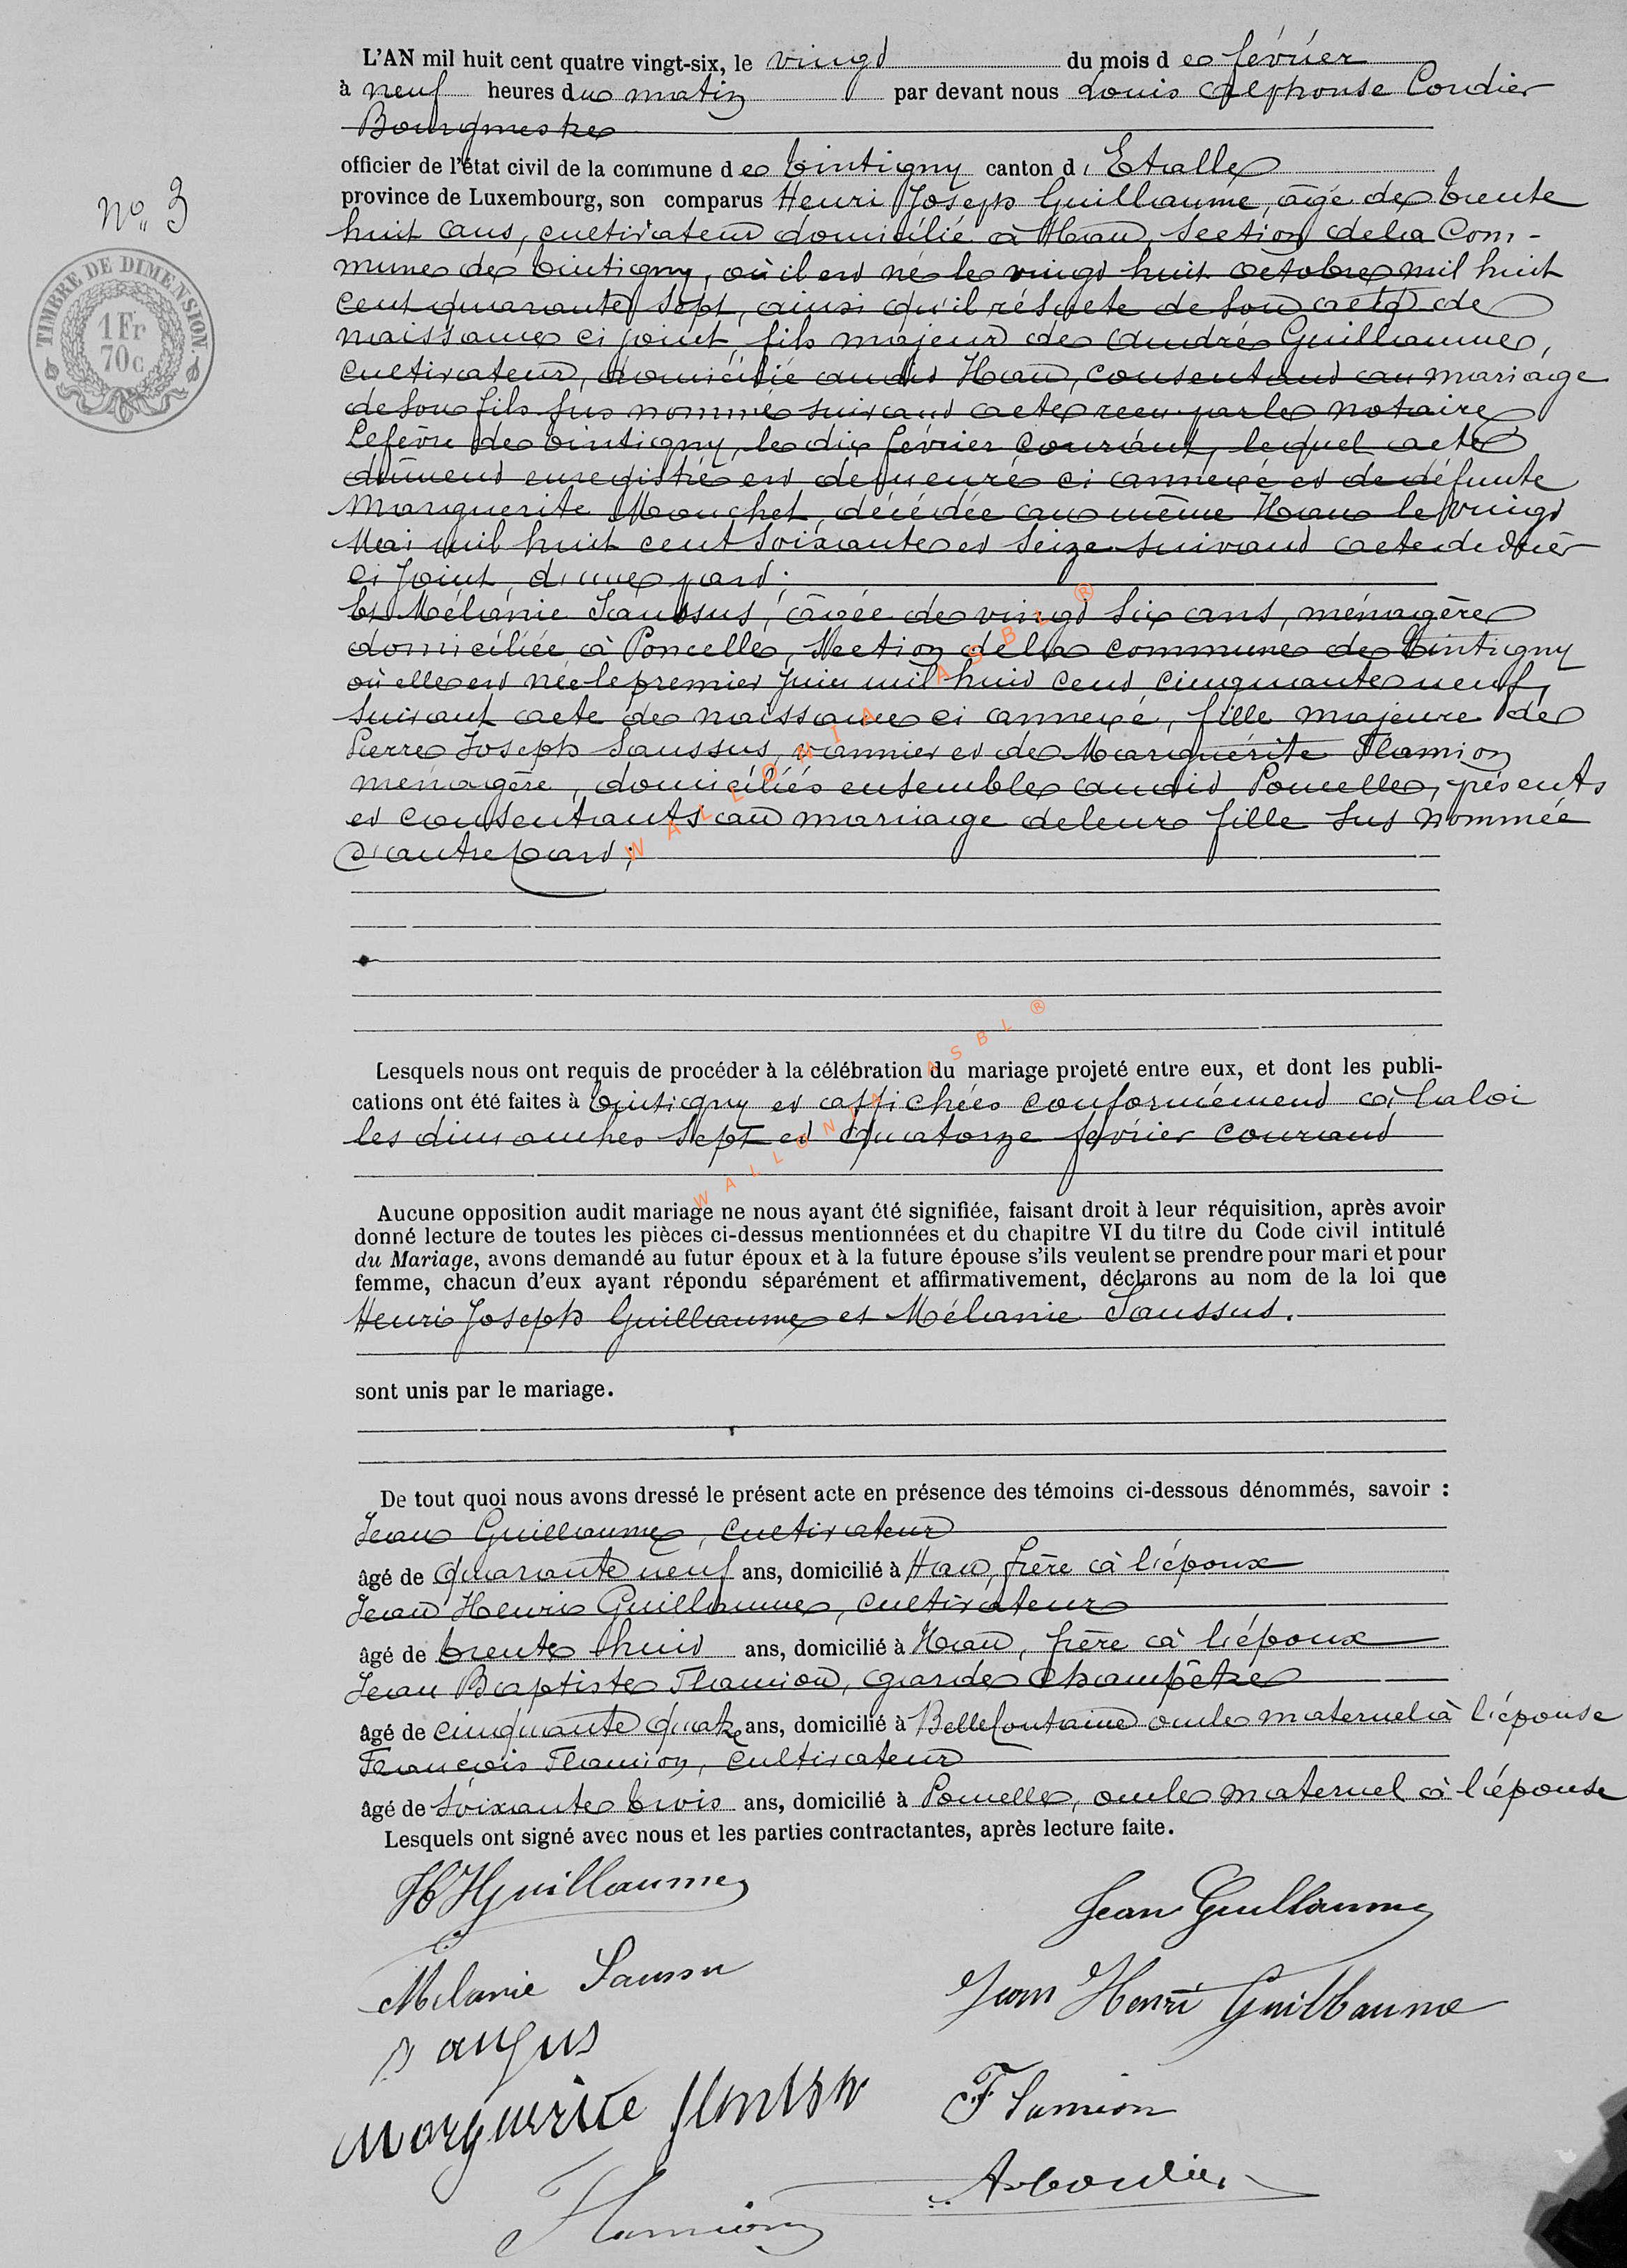 L'AN mil huit cent quatre vingt-six, le vingt du mois de février
à neuf heures du matin par devant nous Louis Alphonse Cordier
Bourgmestre
officier de l'état civil de la commune de Tintigny canton d'Etalle
province de Luxembourg, son comparus Henri Joseph Guillaume, âgé de trente
N° 3
huit ans, cultivateur domicilié à Han, Section de la Com-
TIMBRE DE DIMENSION.
1 Fr
70c
mune de Tintigny, où il est né le vingt huit octobre mil huit
cent quarante sept, ainsi qu'il résulte de son acte de
naissance ci joint, fils majeur de André Guillaume,
cultivateur, domicilié audit Han, consentant au mariage
de son fils sus nommé suivant acte reçu par le notaire
Lefèvre de Tintigny, le dix février courant, lequel acte
dûment enregistré est demeuré ci annexé et de défunte
Marguerite Mouchet, décédée au même Han le vingt
Mai mil huit cent soixante et seize suivant acte de décès
ci joint, d'une part;
Et Mélanie Saussus, âgée de vingt six ans, ménagère
domiciliée à Poncelle, Section de la commune de Tintigny
où elle est née le premier juin mil huit cent cinquante neuf,
suivant acte de naissance ci annexé, fille majeure de
Pierre Joseph Saussus, vannier et de Marguérite Flamion
ménagère, domiciliés ensemble audit Poncelle, présents
et consentants au mariage de leur fille sus nommée
d'autre part;
WALLONIA ASBL ®
Lesquels nous ont requis de procéder à la célébration du mariage projeté entre eux, et dont les publi-
cations ont été faites à Tintigny et affichées conformément à la loi
les dimanches sept et quatorze février courant
WALLONIA ASBL ®
Aucune opposition audit mariage ne nous ayant été signifiée, faisant droit à leur réquisition, après avoir
donné lecture de toutes les pièces ci-dessus mentionnées et du chapitre VI du titre du Code civil intitulé
du Mariage, avons demandé au futur époux et à la future épouse s'ils veulent se prendre pour mari et pour
femme, chacun d'eux ayant répondu séparément et affirmativement, déclarons au nom de la loi que
Henri Joseph Guillaume et Mélanie Saussus.
sont unis par le mariage.
De tout quoi nous avons dressé le présent acte en présence des témoins ci-dessous dénommés, savoir :
Jean Guillaume, cultivateur
âgé de quarante neuf ans, domicilié à Han, frère à l'époux
Jean Henri Guillaume, cultivateur
âgé de trente huit ans, domicilié à Han, frère à l'époux
Jean Baptiste Flamion, garde champêtre
âgé de cinquante quatre ans, domicilié à Bellefontaine oncle maternel à l'épouse
François Flamion, cultivateur
âgé de soixante trois ans, domicilié à Poncelle, oncle maternel à l'épouse
Lesquels ont signé avec nous et les parties contractantes, après lecture faite.
Guillaume
Jean Guillaume
Melanie Saussu
Jean Henri Guillaume
Marguerite
Flamion
Flamion